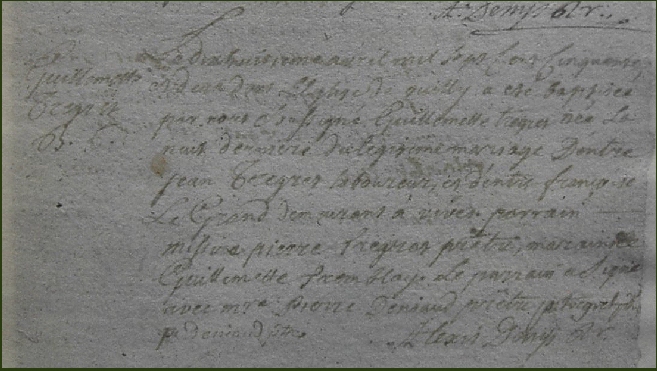 A. Denys
Guillemette
Tregret
B.
Le dixhuitieme avril mil sept cent cinquante
et deux dans L'Eglise de quilly a été baptisée
par nous soussigné Guillemette Tregret née La
nuit derniere du legitime mariage D'entre
jean Tregret laboureur, et d'entre françoise
Le Grand demeurant à parrain
missire pierre Tregret prêtre, maraine
Guillemette Tremblay. Le parrain a signé
avec mre pierre Deniaud prêtre p. Tregret ptre
p. deniaud ptre Alexis Denys